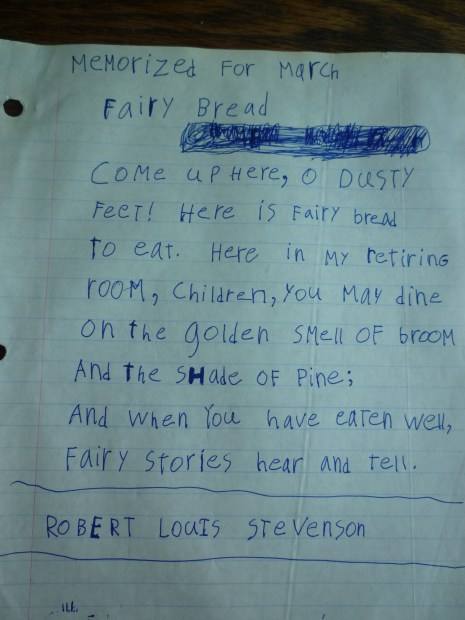 Memorized For March
Fairy Bread
Come up Here, O Dusty
Feet! Here is Fairy bread
To eat. Here in my retiring
room, Children, you may dine
on the golden smell of broom
And the shade of Pine;
And when you have eaten well,
Fairy stories hear and tell.
Robert Louis Stevenson